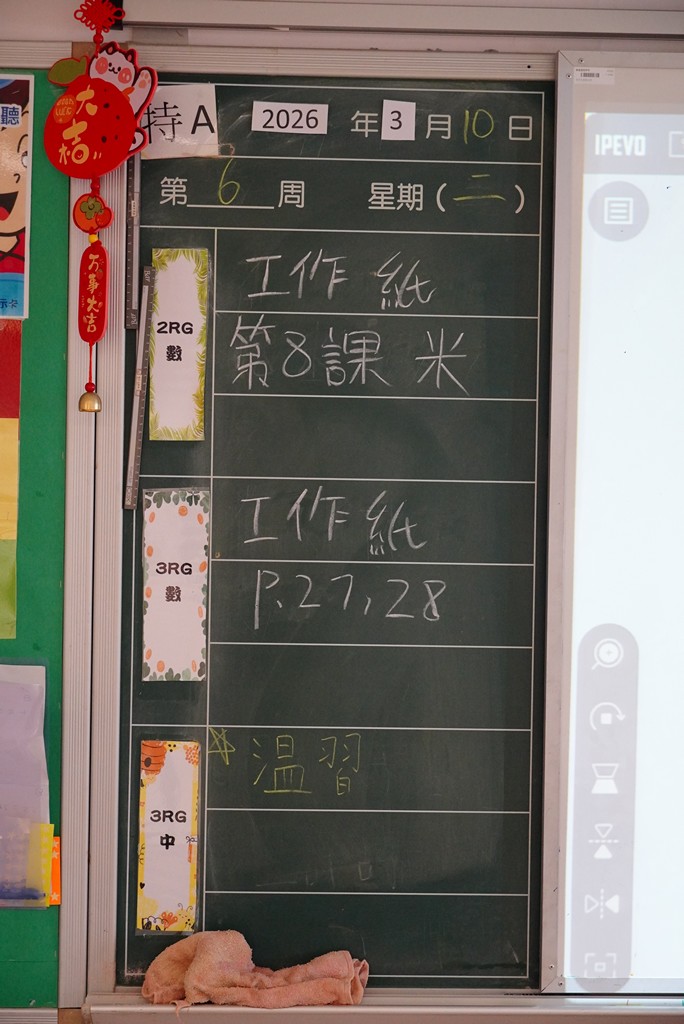 聽
大吉
万事大吉
特A
2026 年 3 月 10 日
第 6 周 星期(二)
2RG 數
工作紙
第8課 米
3RG 數
工作紙
P.27,28
3RG 中
温習
IPEVO